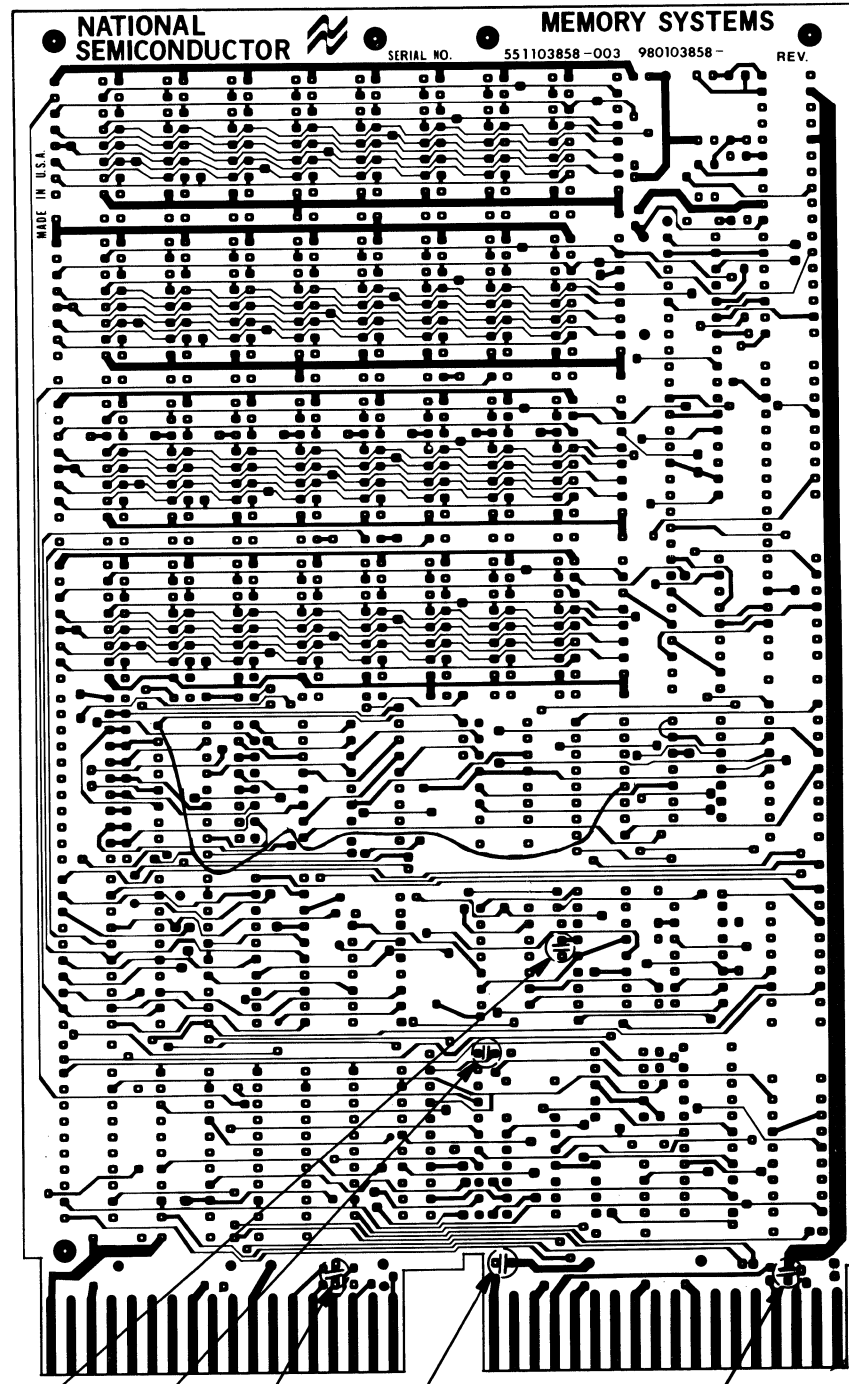 NATIONAL
SEMICONDUCTOR
MEMORY SYSTEMS
SERIAL NO.
551103858-003 980103858-
REV.
MADE IN U.S.A.